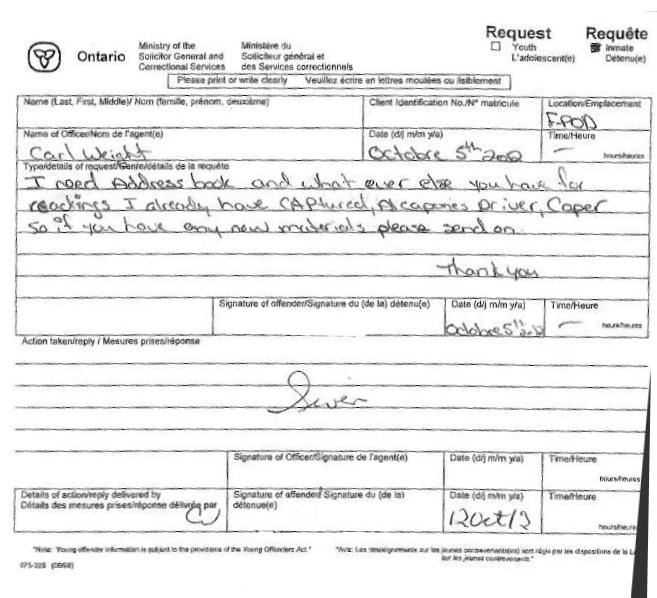 Request Requête
Ontario
Ministry of the
Solicitor General and
Correctional Services
Ministère du
Solliciteur général et
des Services correctionnels
Youth
L'adolescent(e)
Inmate
Détenu(e)
Please print or write clearly Veuillez écrire en lettres moulées ou lisiblement
Name (Last, First, Middle)/ Nom (famille, prénom, deuxième) Client Identification No./N° matricule Location/Emplacement
F-POD
Name of Officer/Nom de l'agent(e) Date (d/j m/m y/a) Time/Heure
Carl Weight Octobre 5th 2012 — hours/heures
Type/details of request/Genre/détails de la requête
I need Address book and what ever else you have for
readings I already have CAPtured, Alcapones Driver, Caper
so if you have any new materials please send on.
Thank you
Signature of offender/Signature du (de la) détenu(e) Date (d/j m/m y/a) Time/Heure
Octobre 5th 2012 — hours/heures
Action taken/reply / Mesures prises/réponse
Signature of Officer/Signature de l'agent(e) Date (d/j m/m y/a) Time/Heure
hours/heures
Details of action/reply delivered by
Détails des mesures prises/réponse délivrée par
Signature of offender/ Signature du (de la)
détenu(e)
Date (d/j m/m y/a) Time/Heure
12 Oct/12 hours/heures
"Note: Young offender information is subject to the provisions of the Young Offenders Act."
"Avis: Les renseignements sur les jeunes contrevenants(es) sont régis par les dispositions de la L
sur les jeunes contrevenants."